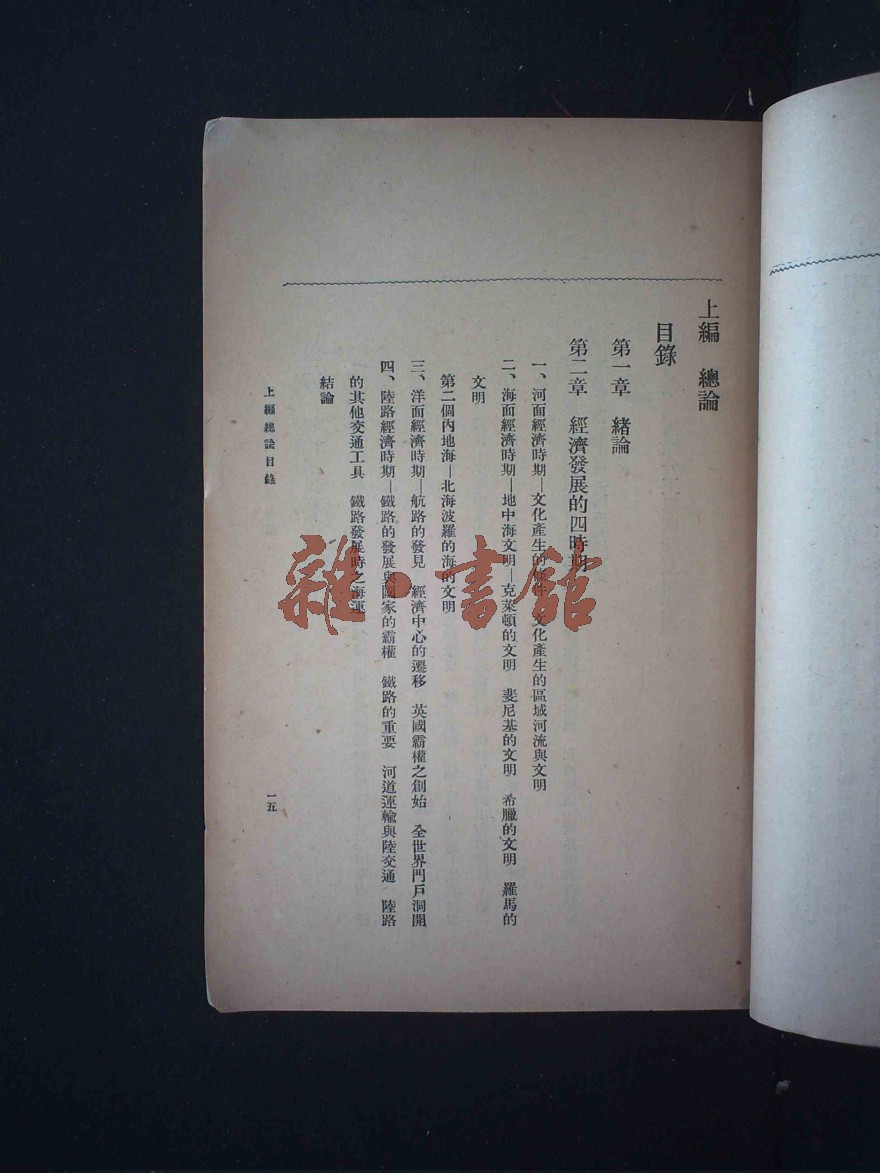 上編　總論
目錄
第一章　緒論
第二章　經濟發展的四時期
一、河面經濟時期—文化產生的條件　文化產生的區域河流與文明
二、海面經濟時期—地中海文明—克萊頓的文明　斐尼基的文明　希臘的文明　羅馬的
文明
第二個內地海—北海波羅的海的文明
三、洋面經濟時期—航路的發見　經濟中心的遷移　英國霸權之創始　全世界門戶洞開
四、陸路經濟時期—鐵路的發展與國家的霸權　鐵路的重要　河道運輸與陸交通　陸路
的其他交通工具　鐵路發展時之海運
結論
上編總論目錄
一五
雜·書館